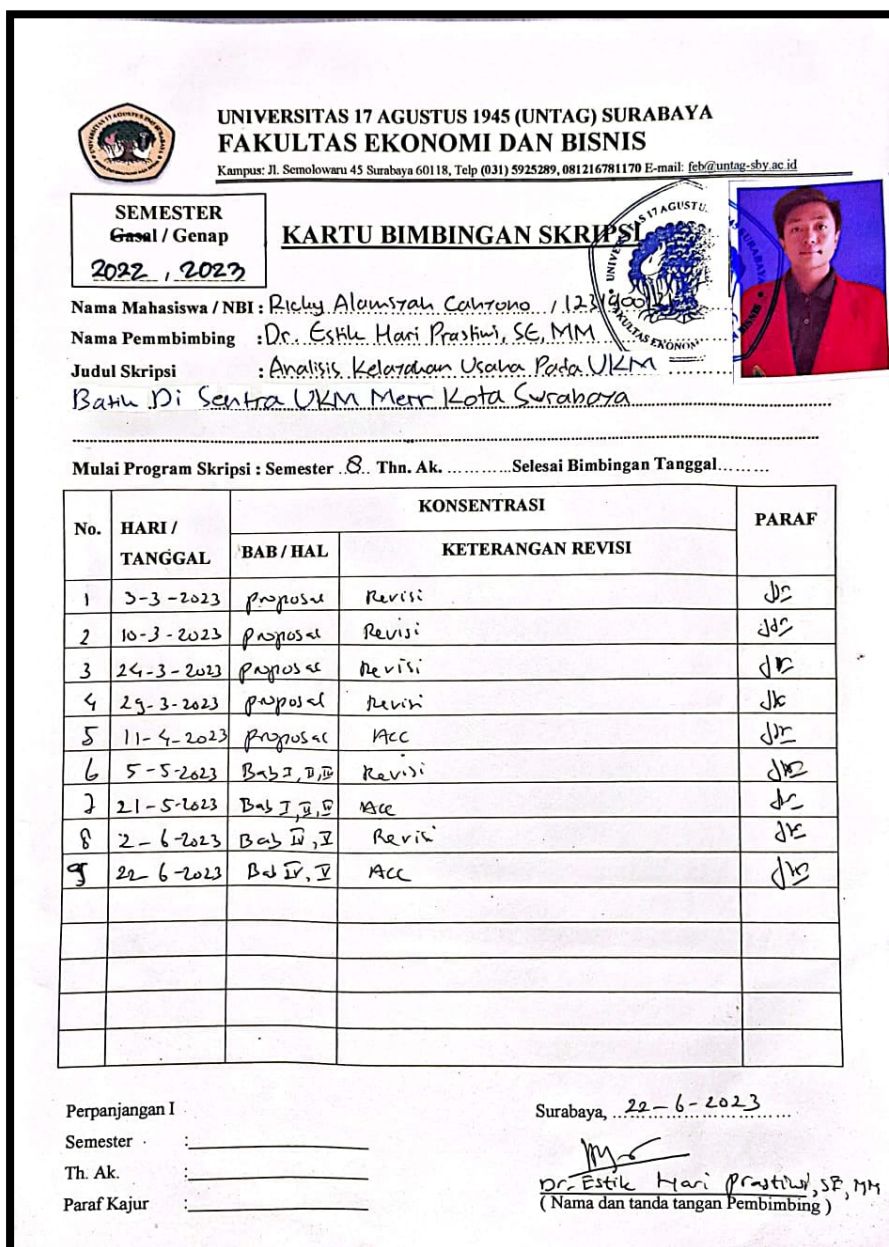 UNIVERSITAS 17 AGUSTUS 1945 (UNTAG) SURABAYA
FAKULTAS EKONOMI DAN BISNIS
Kampus: Jl. Semolowaru 45 Surabaya 60118, Telp (031) 5925289, 081216781170 E-mail: feb@untag-sby.ac.id
SEMESTER
Gasal / Genap
2022 , 2023
KARTU BIMBINGAN SKRIPSI
Nama Mahasiswa / NBI : Ricky Alamsyah Cahyono /
Nama Pemmbimbing : Dr. Estik Hari Prastiwi, SE, MM
Judul Skripsi : Analisis Kelayakan Usaha Pada UKM
Batik Di Sentra UKM Merr Kota Surabaya
Mulai Program Skripsi : Semester 8 Thn. Ak. ............Selesai Bimbingan Tanggal.........
No. HARI / TANGGAL KONSENTRASI PARAF
BAB / HAL KETERANGAN REVISI
1 3-3-2023 proposal Revisi
2 10-3-2023 proposal Revisi
3 24-3-2023 proposal Revisi
4 29-3-2023 proposal Revisi
5 11-4-2023 proposal Acc
6 5-5-2023 Bab I, II, III Revisi
7 21-5-2023 Bab I, II, III Acc
8 2-6-2023 Bab IV, V Revisi
9 22-6-2023 Bab IV, V Acc
Perpanjangan I
Semester :
Th. Ak. :
Paraf Kajur :
Surabaya, 22-6-2023
Dr. Estik Hari Prastiwi, SE, MM
( Nama dan tanda tangan Pembimbing )